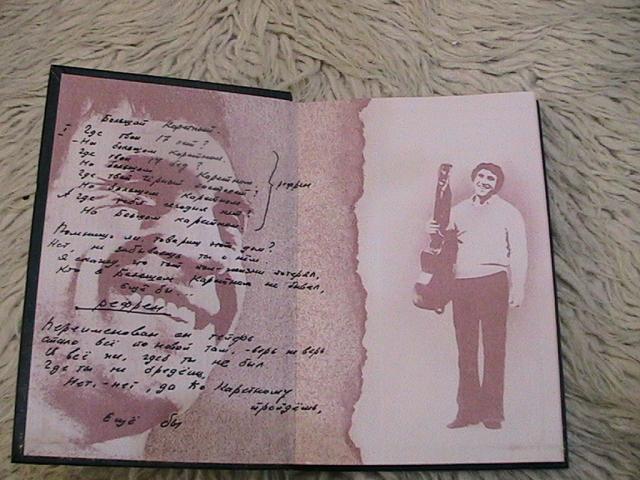 Большой Каретный.
1 Где твои 17 лет?
- На большом Каретном.
Где твои 17 бед?
На большом Каретном
Где твой чёрный пистолет?
На большом Каретном
А где тебя сегодня нет?
На большом каретном
рефрен
Помнишь ли, товарищ этот дом?
Нет, не забываешь ты о нём
Я скажу, что тот пол жизни потерял,
Кто в Большом Каретном не бывал,
Ещё бы...
рефрен
Переименован он теперь
стало всё по новой там, -верь не верь
И всё же, где б ты не был
Где ты ни бредёшь,
Нет,-нет, да по Каретному
пройдёшь,
Ещё бы